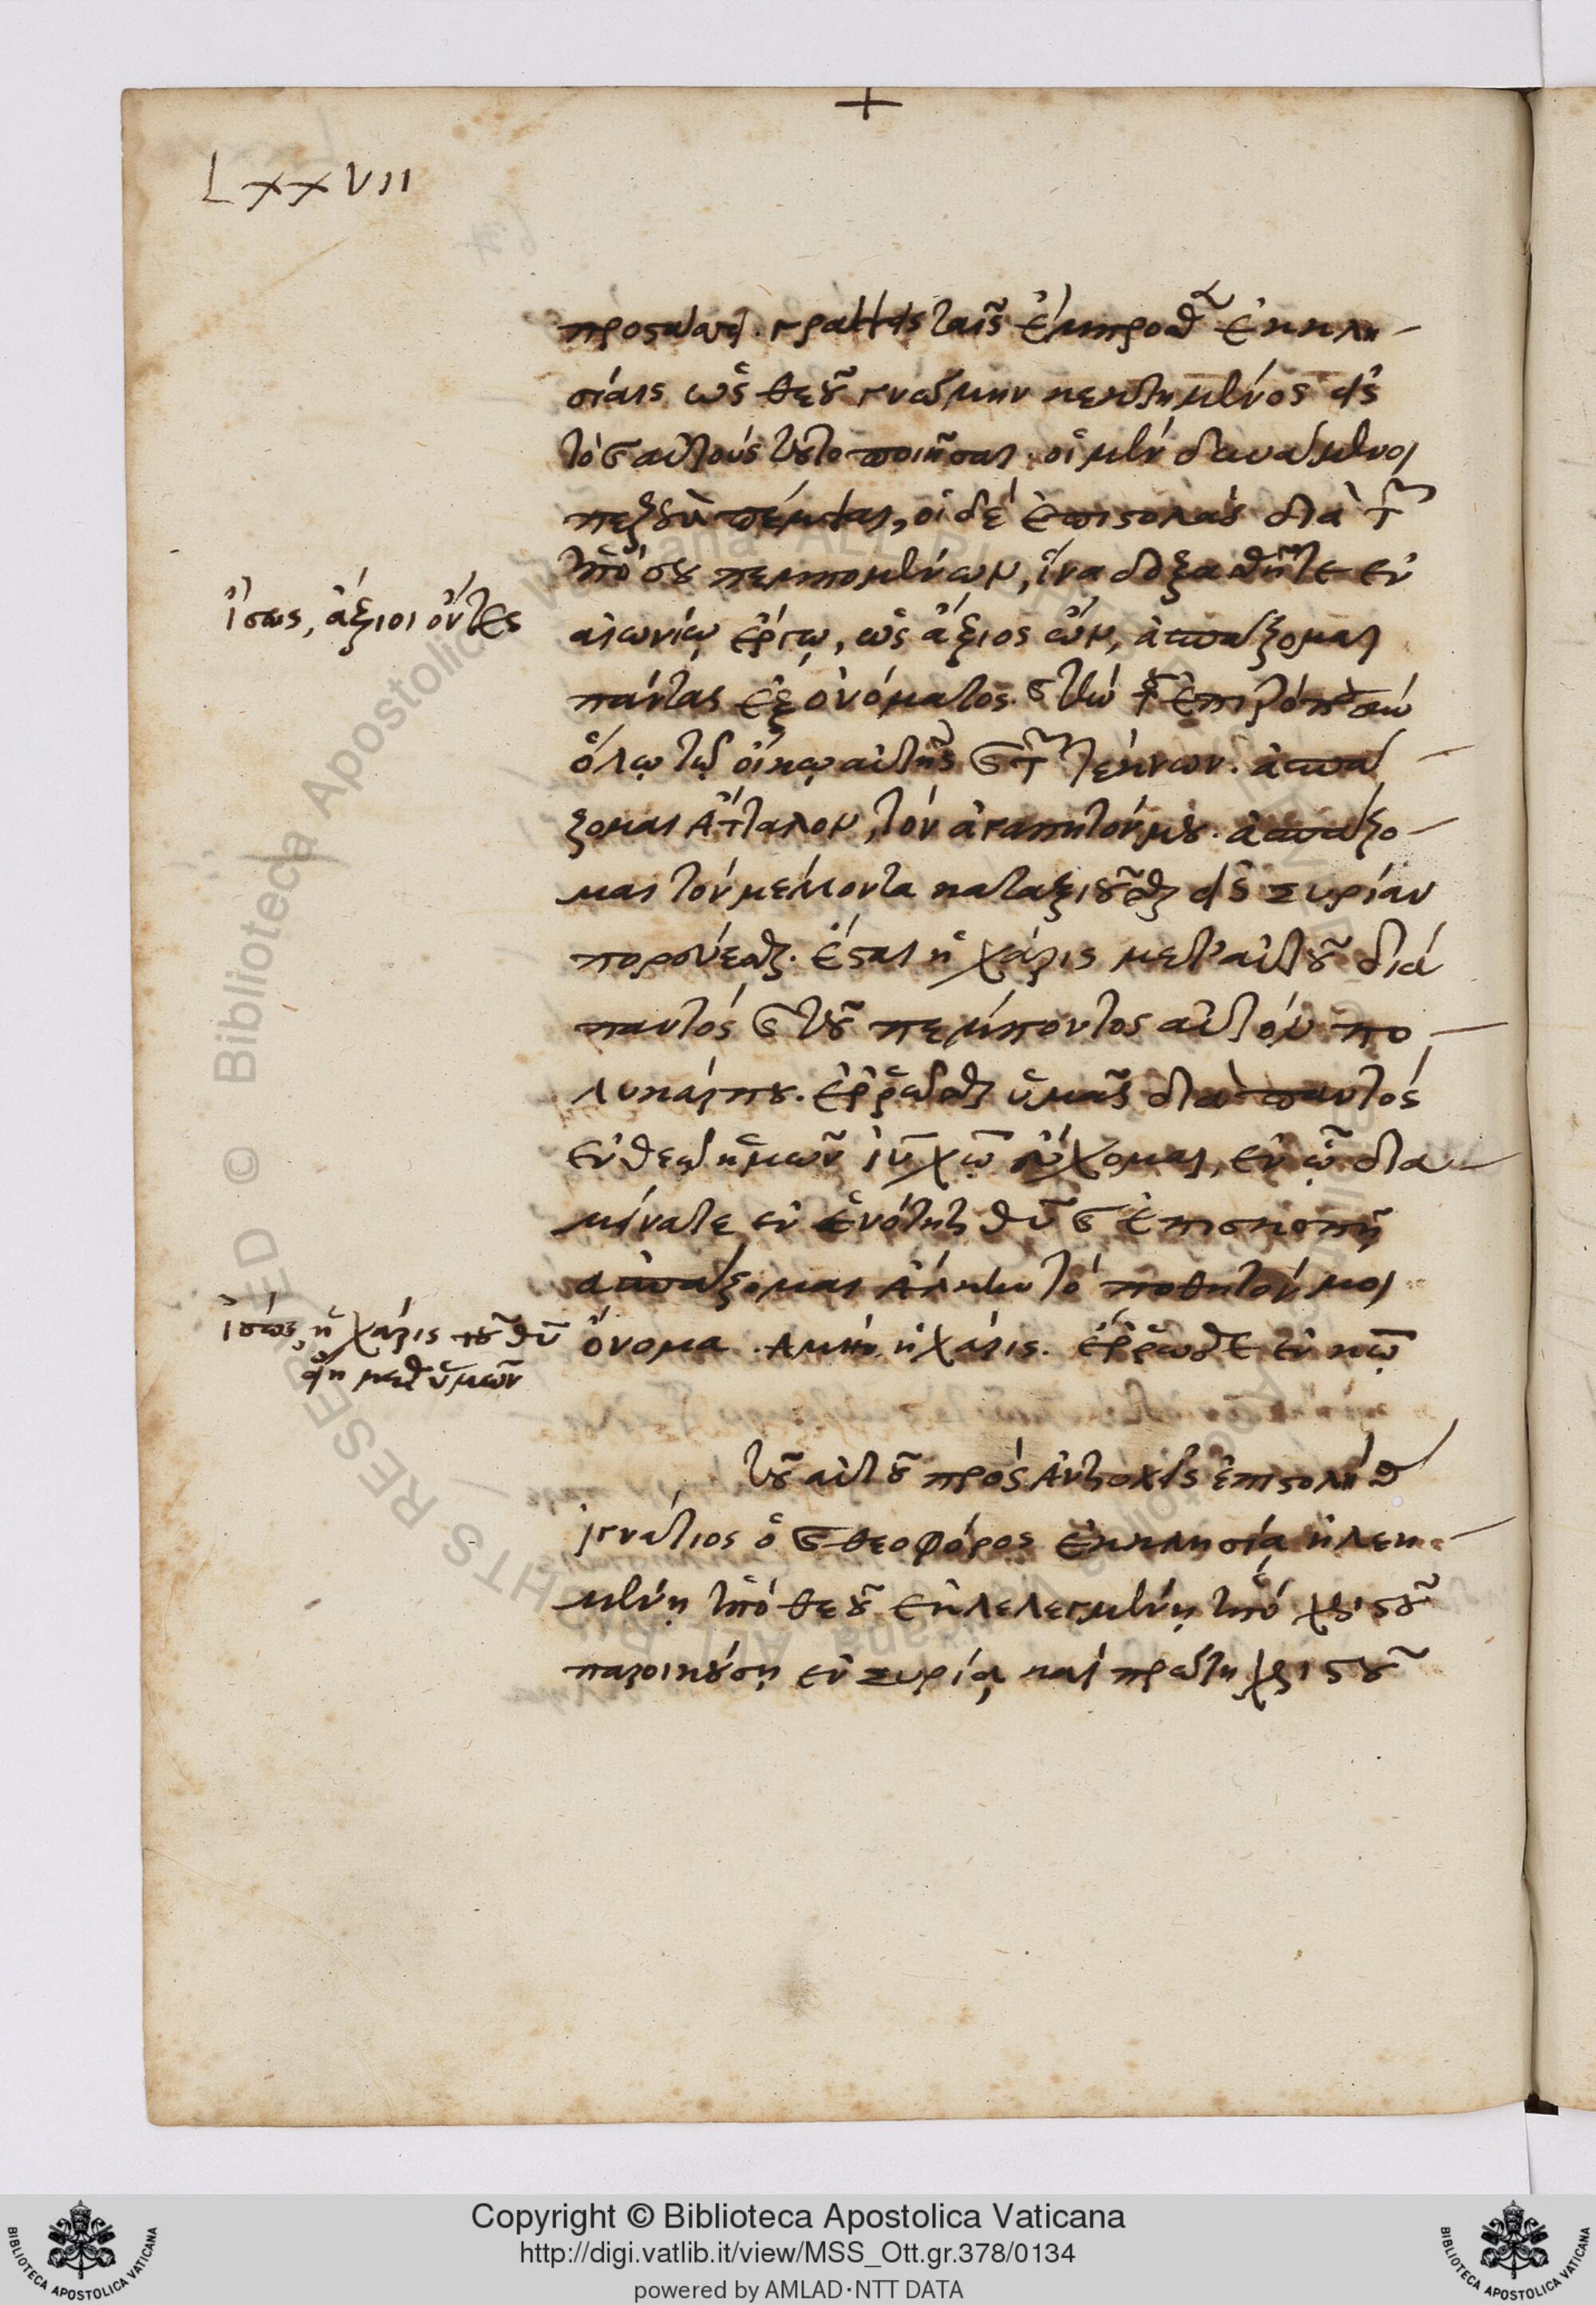 +
LXXVII
προστάσσει. γράψεις ταῖς ἔμπροσθεν ἐκκλη-
σίαις ὡς θεοῦ γνώμην κεκτημένος εἰς
τὸ καὶ αὐτοὺς τοῦτο ποιῆσαι. οἱ μὲν δυνάμενοι
πεζοὺς πέμψαι, οἱ δὲ ἐπιστολὰς διὰ τῶν
ὑπό σου πεμπομένων, ἵνα δοξασθῆτε ἐν
ἴσως, ἄξιοι ὄντες
αἰωνίῳ ἔργῳ, ὡς ἄξιος ὤν, ἀσπάζομαι
πάντας ἐξ ὀνόματος. καὶ τὴν τοῦ Ἐπιτρόπου σὺν
ὅλῳ τῷ οἴκῳ αὐτῆς καὶ τῶν τέκνων. ἀσπά-
ζομαι Ἄτταλον, τὸν ἀγαπητόν μου. ἀσπάζο-
μαι τὸν μέλλοντα καταξιοῦσθαι εἰς Συρίαν
πορεύεσθαι. ἔσται ἡ χάρις μετ' αὐτοῦ διὰ
παντός καὶ τοῦ πέμποντος αὐτὸν πο-
λυκάρπου. ἐρρῶσθαι ὑμᾶς διὰ παντός
ἐν θεῷ ἡμῶν ἰῦ χῷ εὔχομαι, ἐν ᾧ δια-
μείνατε ἐν ἑνότητι θῦ καὶ ἐπισκοπῇ
ἀσπάζομαι Ἄλκην τὸ ποθητόν μοι
ἴσως, ἡ χάρις τοῦ θῦ
εἴη μεθ' ὑμῶν
ὄνομα. Ἀμήν ἡ χάρις. ἔρρωσθε ἐν κῷ
τοῦ αὐτοῦ πρὸς Ἀντιοχεῖς ἐπιστολὴ θ
Ἰγνάτιος ὁ καὶ θεοφόρος ἐκκλησίᾳ ἠλεη-
μένῃ ὑπὸ θεοῦ ἐκλελεγμένῃ ὑπὸ χριστοῦ
παροικούσῃ ἐν Συρίᾳ καὶ πρώτῃ χριστοῦ
Copyright © Biblioteca Apostolica Vaticana
http://digi.vatlib.it/view/MSS_Ott.gr.378/0134
powered by AMLAD·NTT DATA